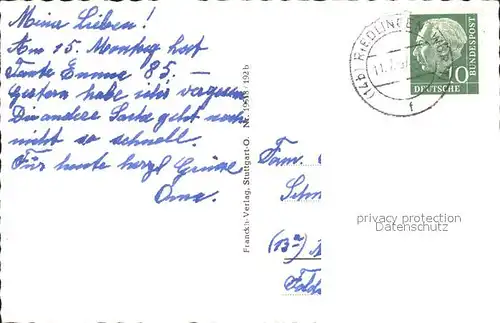 Meine Lieben!
Am 15. Montag hat
Tante Emma 85. —
Gestern habe ich's vergessen
Die andere Sache geht noch
nicht so schnell.
Für heute herzl. Grüsse
Oma.
Franckh-Verlag, Stuttgart-O. Nr.
(14b) RIEDLINGEN (WÜRTT)
f
10
DEUTSCHE
BUNDESPOST
Fam.
(13a)
privacy protection
Datenschutz